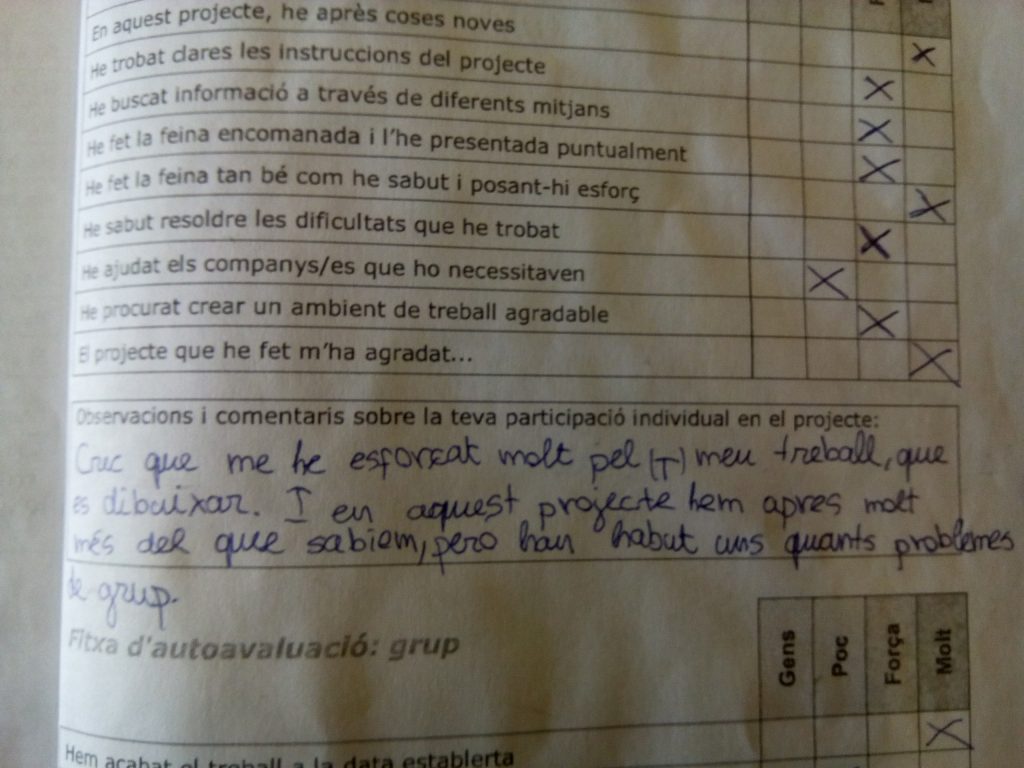 En aquest projecte, he après coses noves
He trobat clares les instruccions del projecte
He buscat informació a través de diferents mitjans
He fet la feina encomanada i l'he presentada puntualment
He fet la feina tan bé com he sabut i posant-hi esforç
He sabut resoldre les dificultats que he trobat
He ajudat els companys/es que ho necessitaven
He procurat crear un ambient de treball agradable
El projecte que he fet m'ha agradat...
Observacions i comentaris sobre la teva participació individual en el projecte:
Crec que me he esforçat molt pel (T) meu treball, que
es dibuixar. I en aquest projecte hem apres molt
més del que sabiem, pero han habut uns quants problemes
de grup.
Fitxa d'autoavaluació: grup
Gens Poc Força Molt
Hem acabat el treball a la data establerta